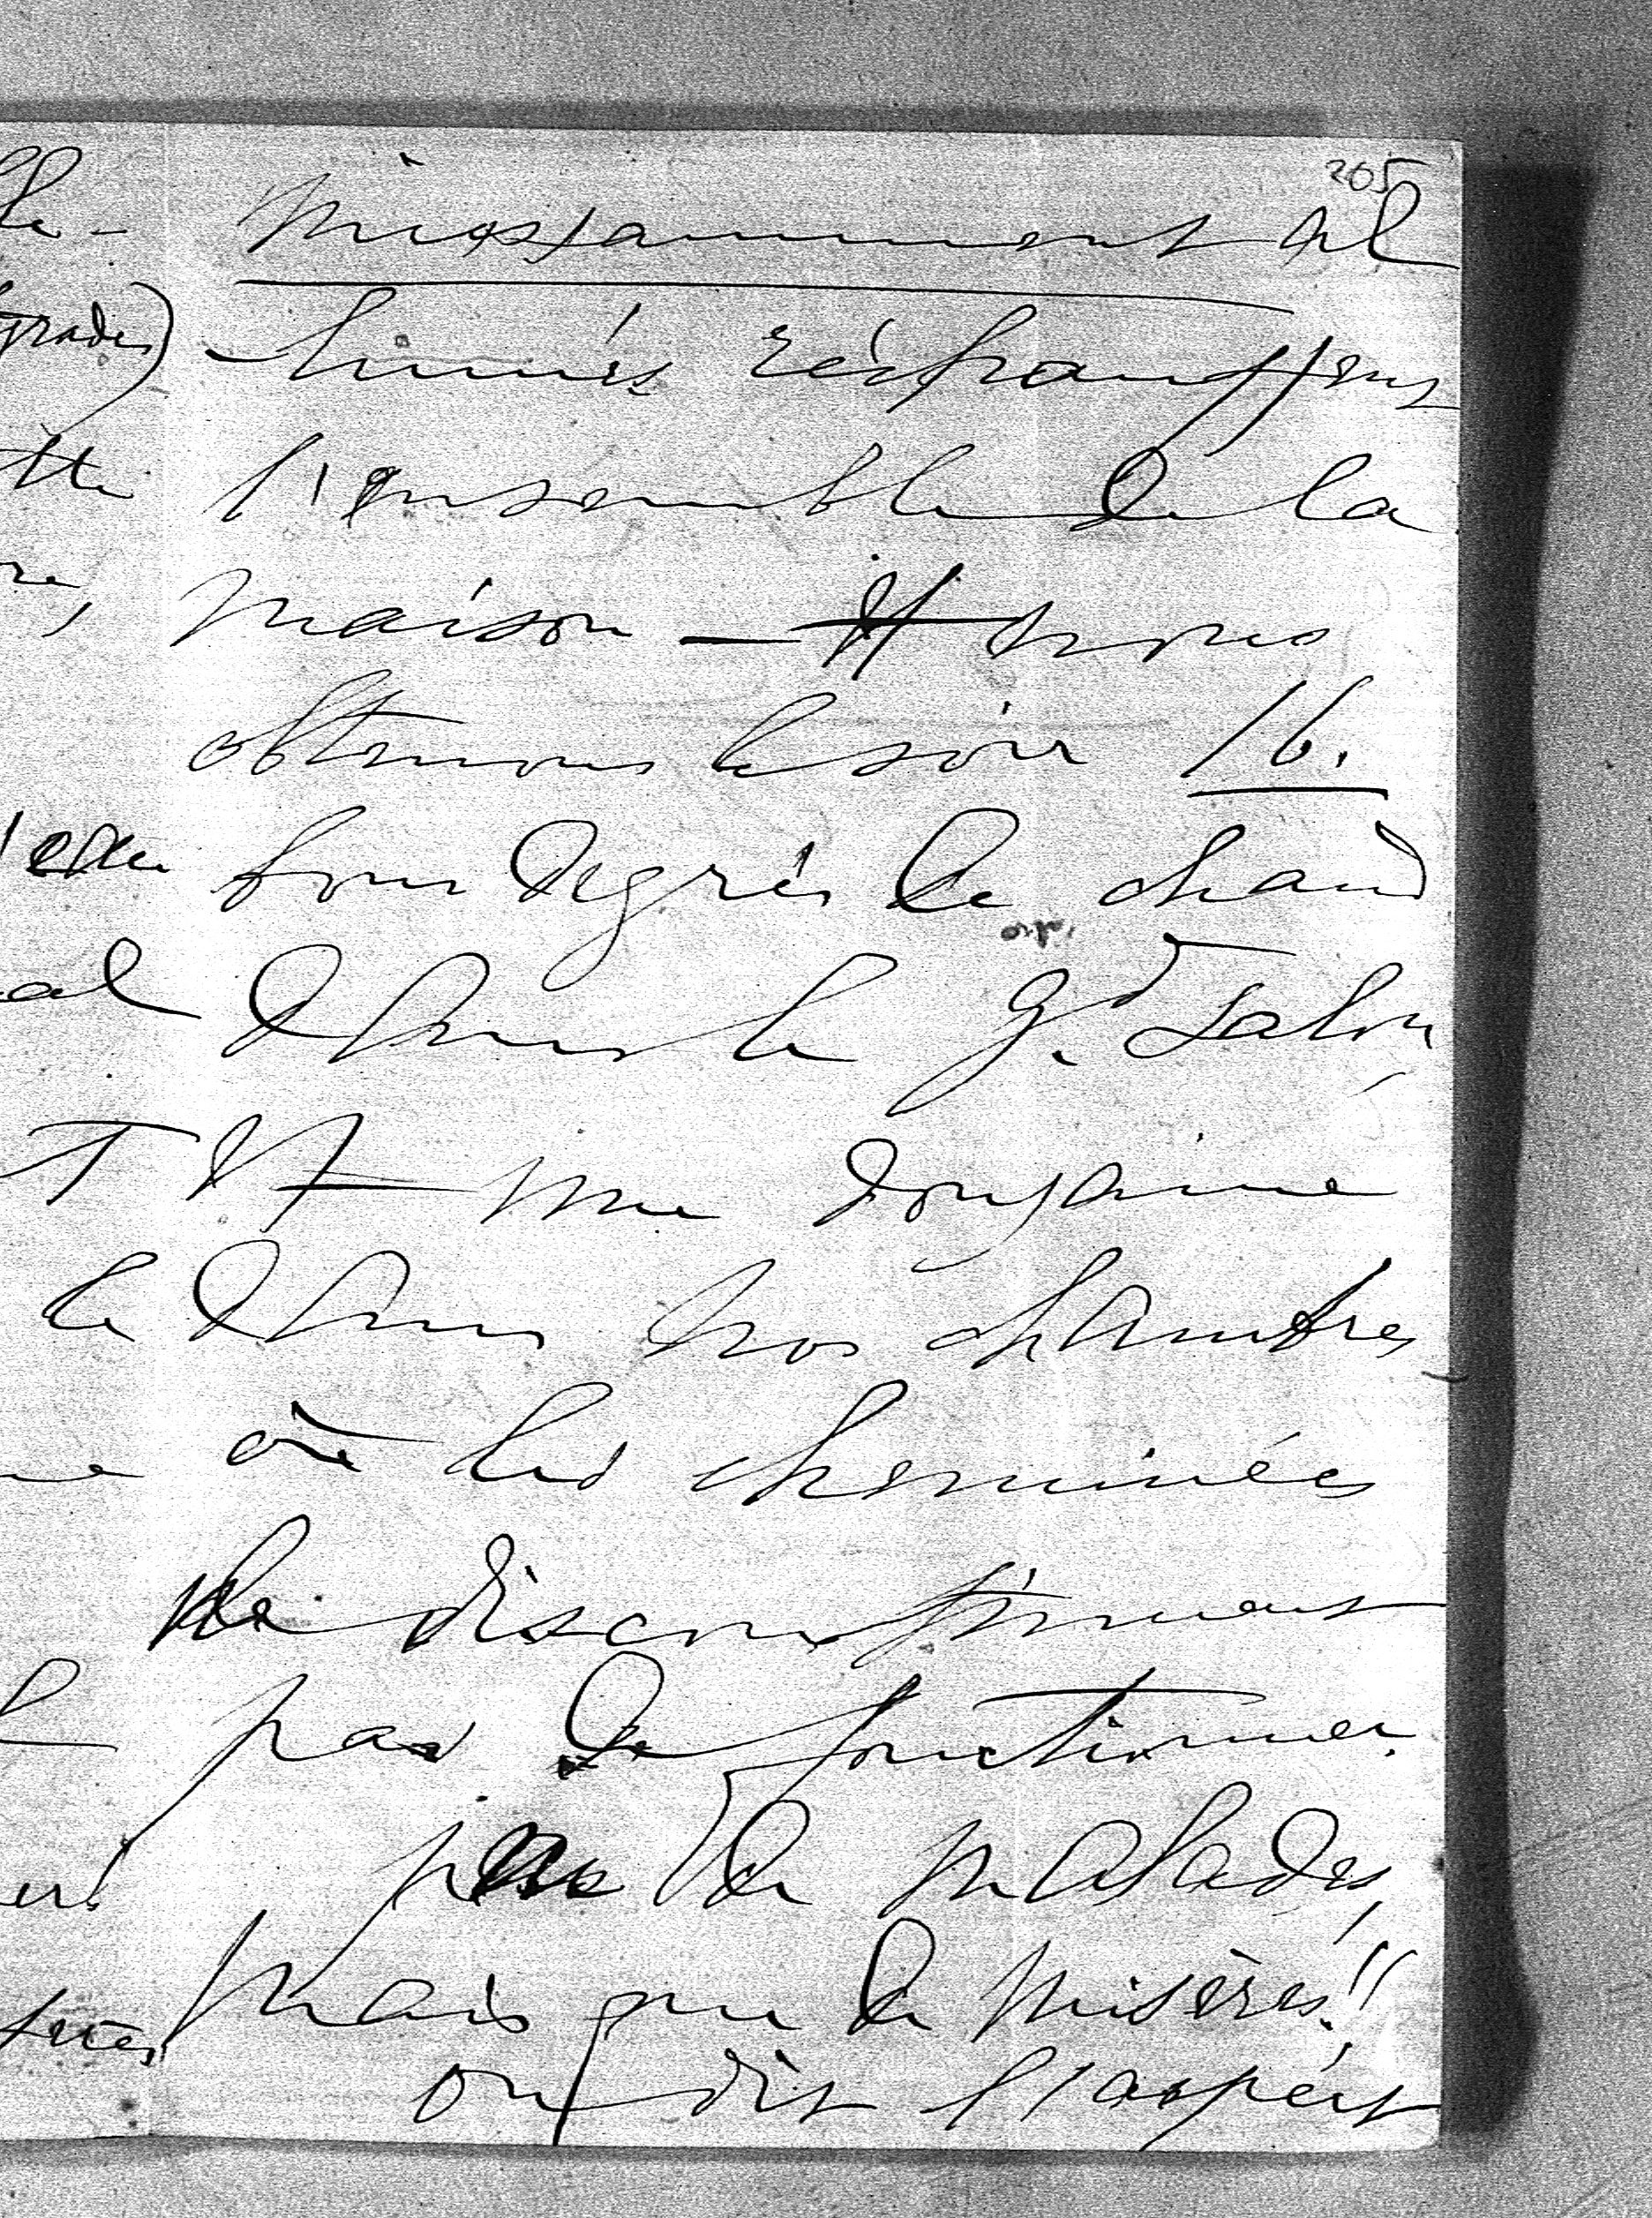 205
missamment al
lumés réchauffent
l'ensemble de la
maison — et nous
obtenons le soir 16.
bons degrés de chaud
dans le gd. Salon,
et une douzaine
dans nos chambres
où les cheminées
ne discontinuent
pas de fonctionner.
pas de malades,
mais que de misères!!
on dit l'aspect
grades)
tte
re,
eau
al
T
le